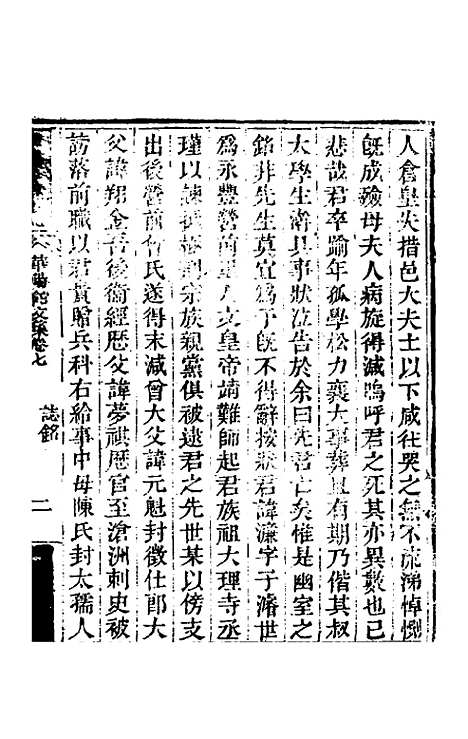 人倉皇失措邑大夫士以下咸往哭之無不流涕悼惻
旣成殮母夫人病旋得減嗚呼君之死其亦異數也已
悲哉君卒踰年孤學松力襄大事葬且有期乃偕其叔
大學生濬具事狀泣告於余曰先君亡矣惟是幽室之
銘非先生莫宜爲于旣不得辭按狀君諱濂字子濬世
爲永豐營前里人文皇帝靖難師起君族祖大理寺丞
瑾以諫抵極刑宗族親黨俱被逮君之先世某以傍支
出後營前何氏遂得末減曾大父諱元魁封徵仕郎大
父諱翔金吾後衞經歷父諱夢祺歷官至滄洲刺史被
訪落前職以君貴贈兵科右給事中母陳氏封太孺人
華陽館文集卷七
誌銘
二